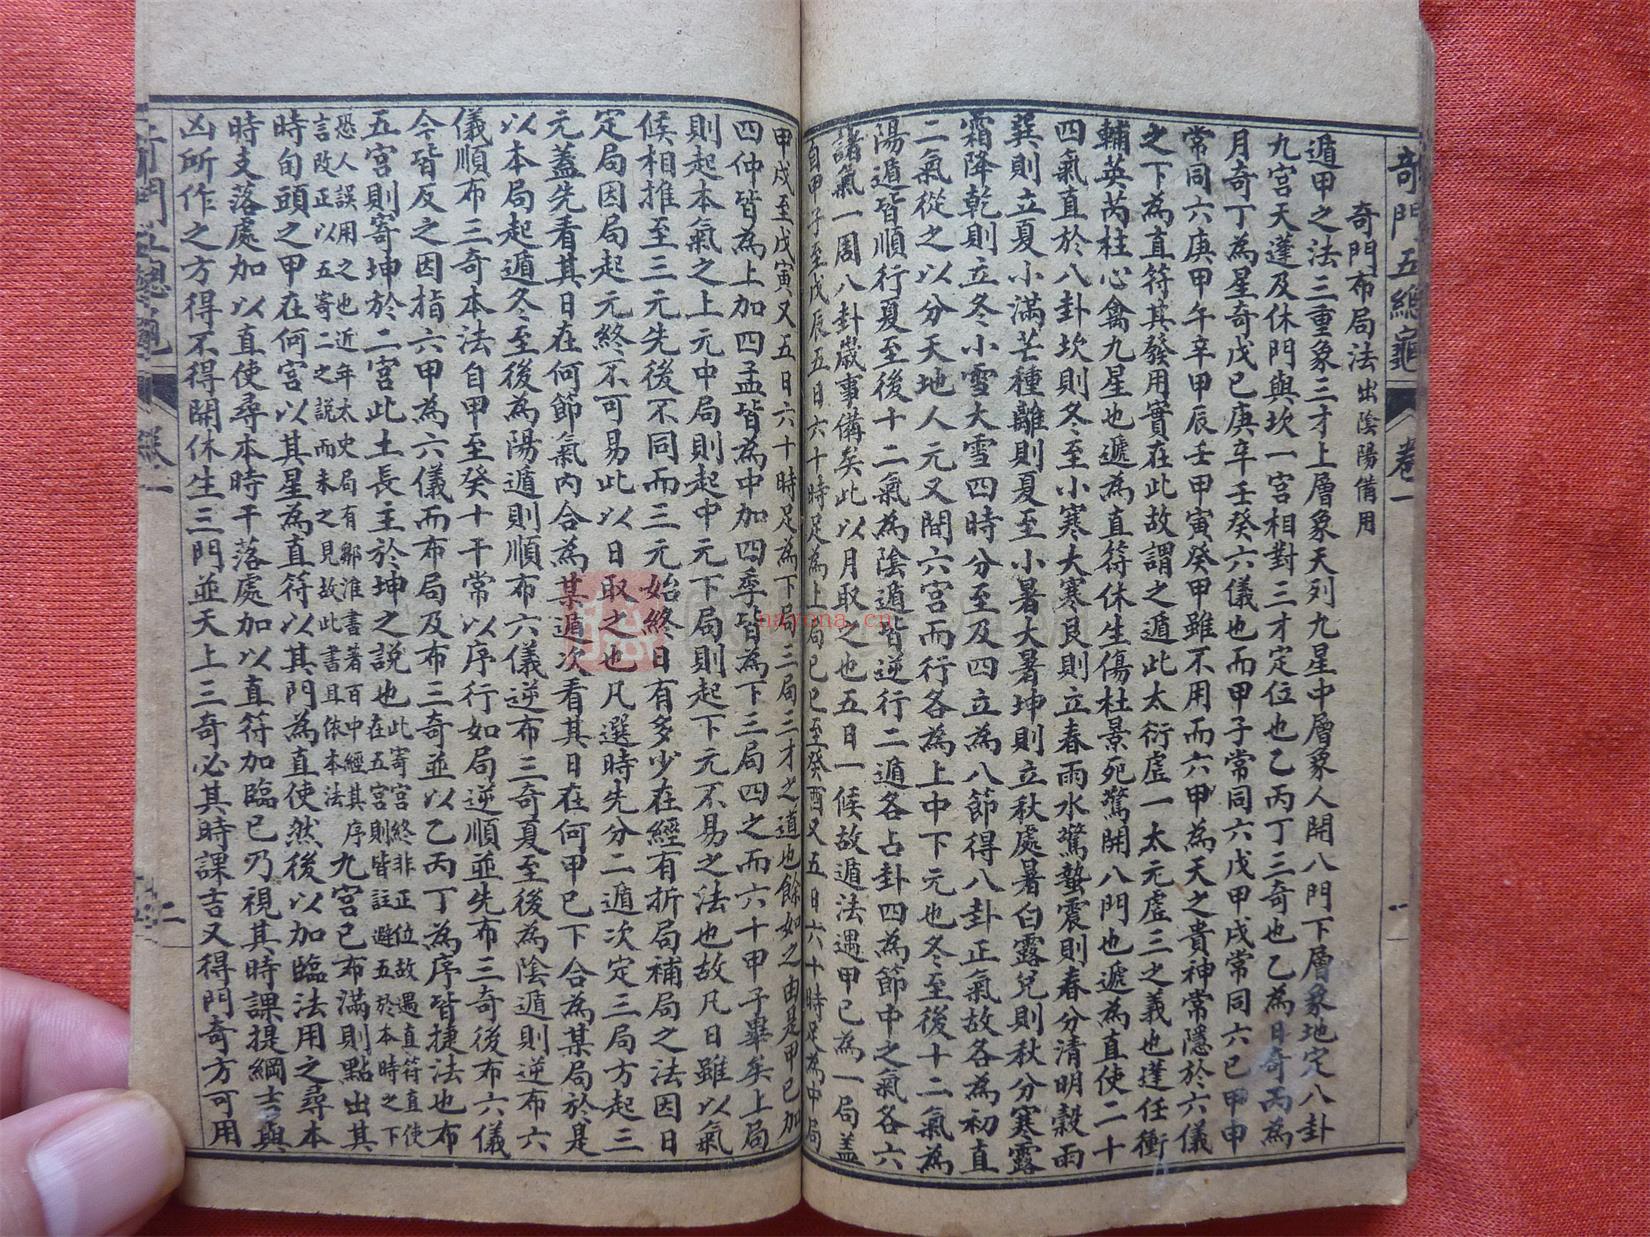 奇門五總龜 卷一
奇門布局法 出陰陽備用
遁甲之法三重象三才上層象天列九星中層象人開八門下層象地定八卦
九宮天蓬及休門與坎一宮相對三才定位也乙丙丁三奇也乙為日奇丙為
月奇丁為星奇戊己庚辛壬癸六儀也而甲子常同六戊甲戌常同六己甲申
常同六庚甲午辛甲辰壬甲寅癸甲雖不用而六甲為天之貴神常隱於六儀
之下為直符其發用實在此故謂之遁此太衍虛一太元虛三之義也蓬任衝
輔英芮柱心禽九星也遞為直符休生傷杜景死驚開八門也遞為直使二十
四氣直於八卦坎則冬至小寒大寒艮則立春雨水驚蟄震則春分清明穀雨
巽則立夏小滿芒種離則夏至小暑大暑坤則立秋處暑白露兌則秋分寒露
霜降乾則立冬小雪大雪四時分至及四立為八節得八卦正氣故各為初直
二氣從之以分天地人元又間六宮而行各為上中下元也冬至後十二氣為
陽遁皆順行夏至後十二氣為陰遁皆逆行二遁各占卦四為節中之氣各六
諸氣一周八卦歲事備矣此以月取之也五日一候故遁法遇甲己為一局蓋
自甲子至戊辰五日六十時足為上局己巳至癸酉又五日六十時足為中局
甲戌至戊寅又五日六十時足為下局三局三才之道也餘如之由是甲己加
四仲皆為上加四孟皆為中加四季皆為下三局四之而六十甲子畢矣上局
則起本氣之上元中局則起中元下局則起下元不易之法也故凡日雖以氣
候相推至三元先後不同而三元始終日有多少在經有折局補局之法因日
定局因局起元終不可易此以日取之也凡選時先分二遁次定三局方起三
元蓋先看其日在何節氣內合為某遁次看其日在何甲己下合為某局於是
以本局起遁冬至後為陽遁則順布六儀逆布三奇夏至後為陰遁則逆布六
儀順布三奇本法自甲至癸十干常以序行如局逆順並先布三奇後布六儀
今皆反之因指六甲為六儀而布局及布三奇並以乙丙丁為序皆捷法也布
五宮則寄坤於二宮此土長主於坤之說也 此寄宮終非正位故遇直符直使
在五宮則皆註避五於本時之下
恐人誤用之也近年太史局有鄒淮書著百中經其序
言改正以五寄二之說而未之見故此書且依本法 九宮已布滿則點出其
時旬頭之甲在何宮以其星為直符以其門為直使然後以加臨法用之尋本
時支落處加以直使尋本時干落處加以直符加臨已乃視其時課提綱吉與
凶所作之方得不得開休生三門並天上三奇必其時課吉又得門奇方可用
二